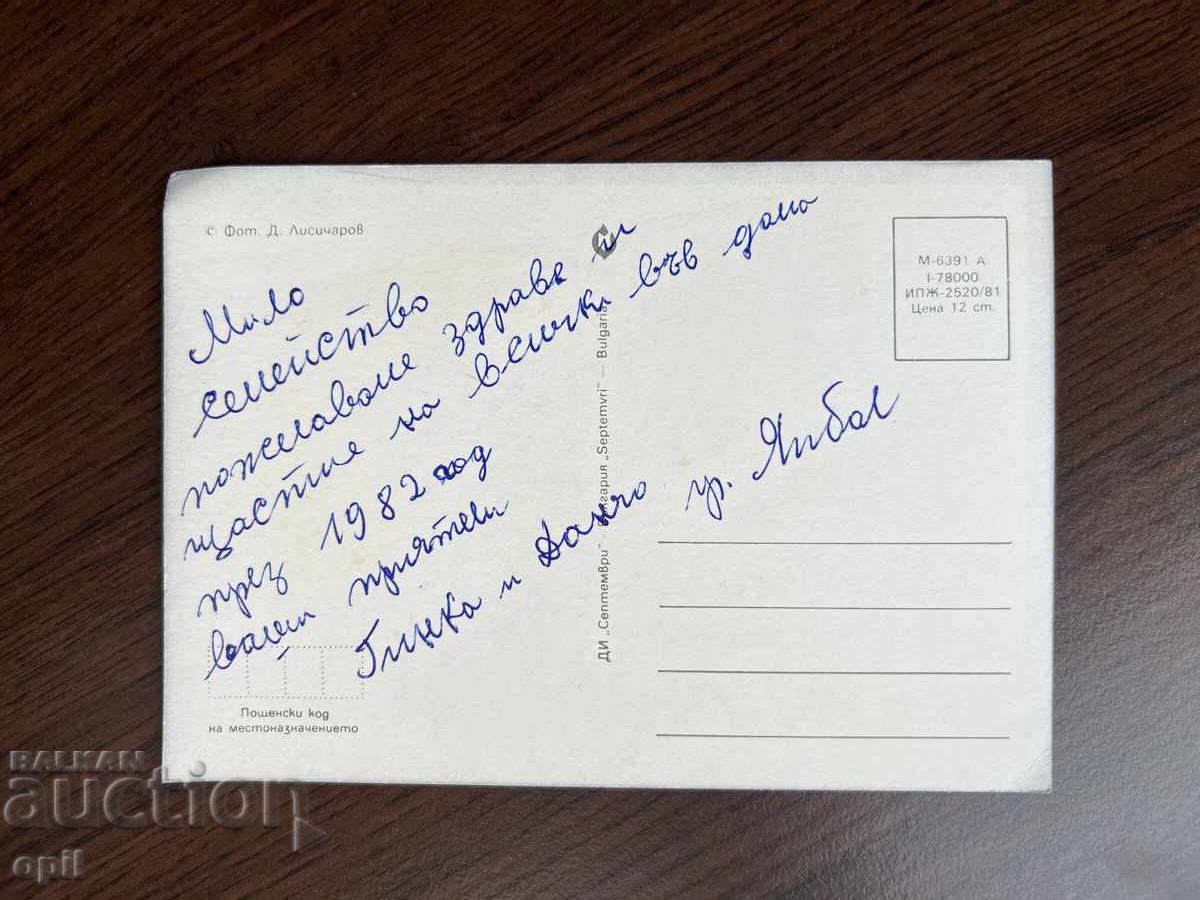 с Фот. Д. Лисичаров
Мило
семейство
пожелаваме здраве и
щастие на всички във дома
през 1982 год
ваши приятели
Гинка и Данчо гр. Ямбол
ДИ „Септември“ — България „Septemvri“ — Bulgaria
М-6391 А
I-78000
ИПЖ-2520/81
Цена 12 ст.
Пощенски код
на местоназначението
BALKAN
auction
opil